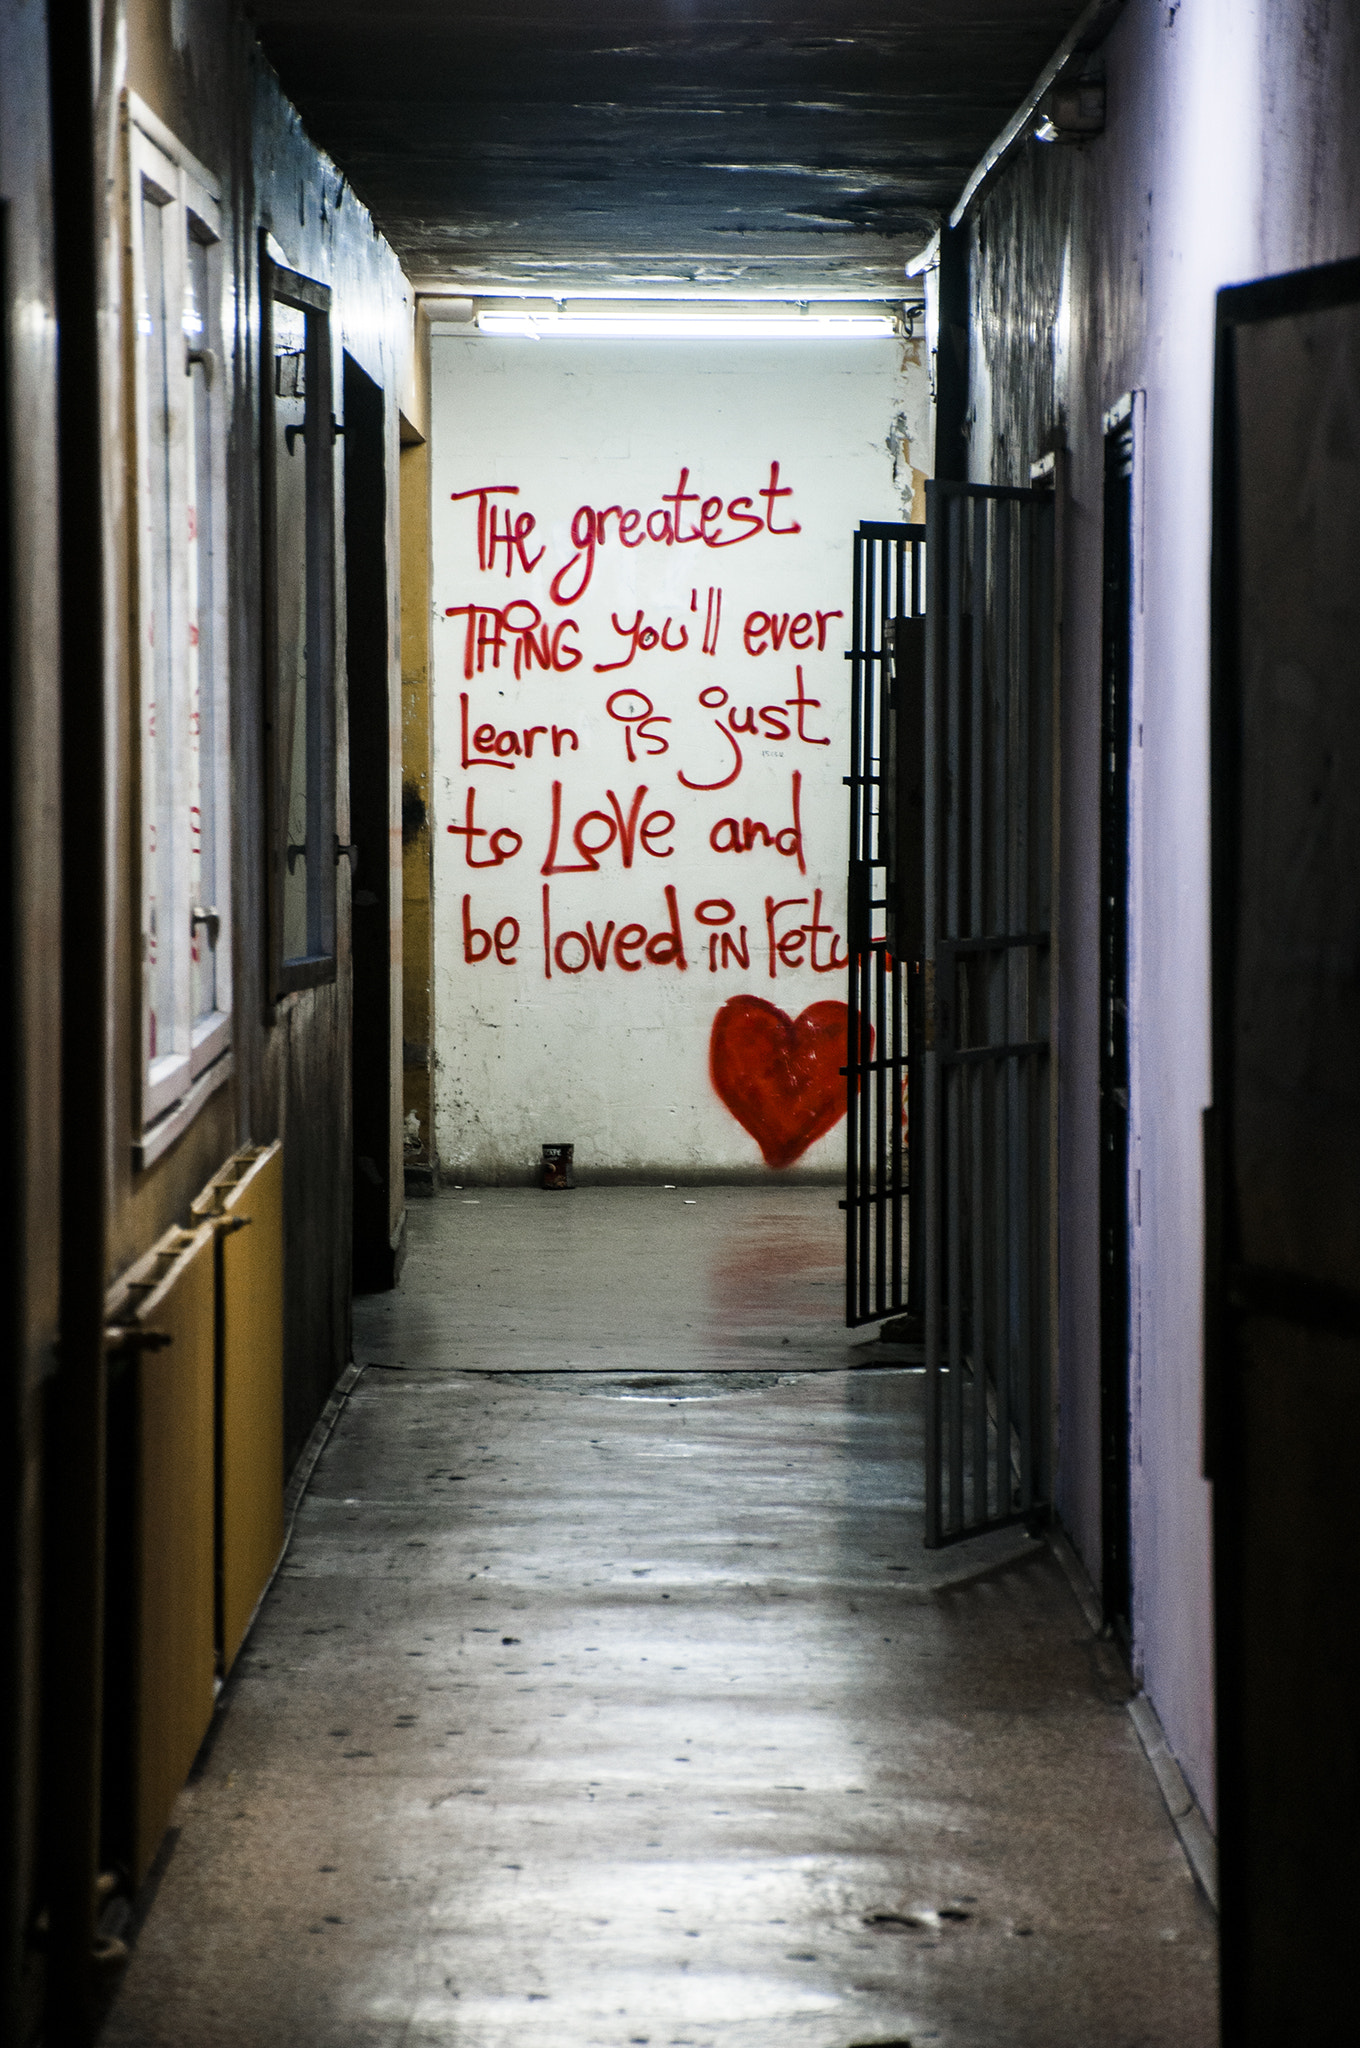 THe greatest
THiNG you'll ever
Learn is just
to LoVe and
be loved iN retu